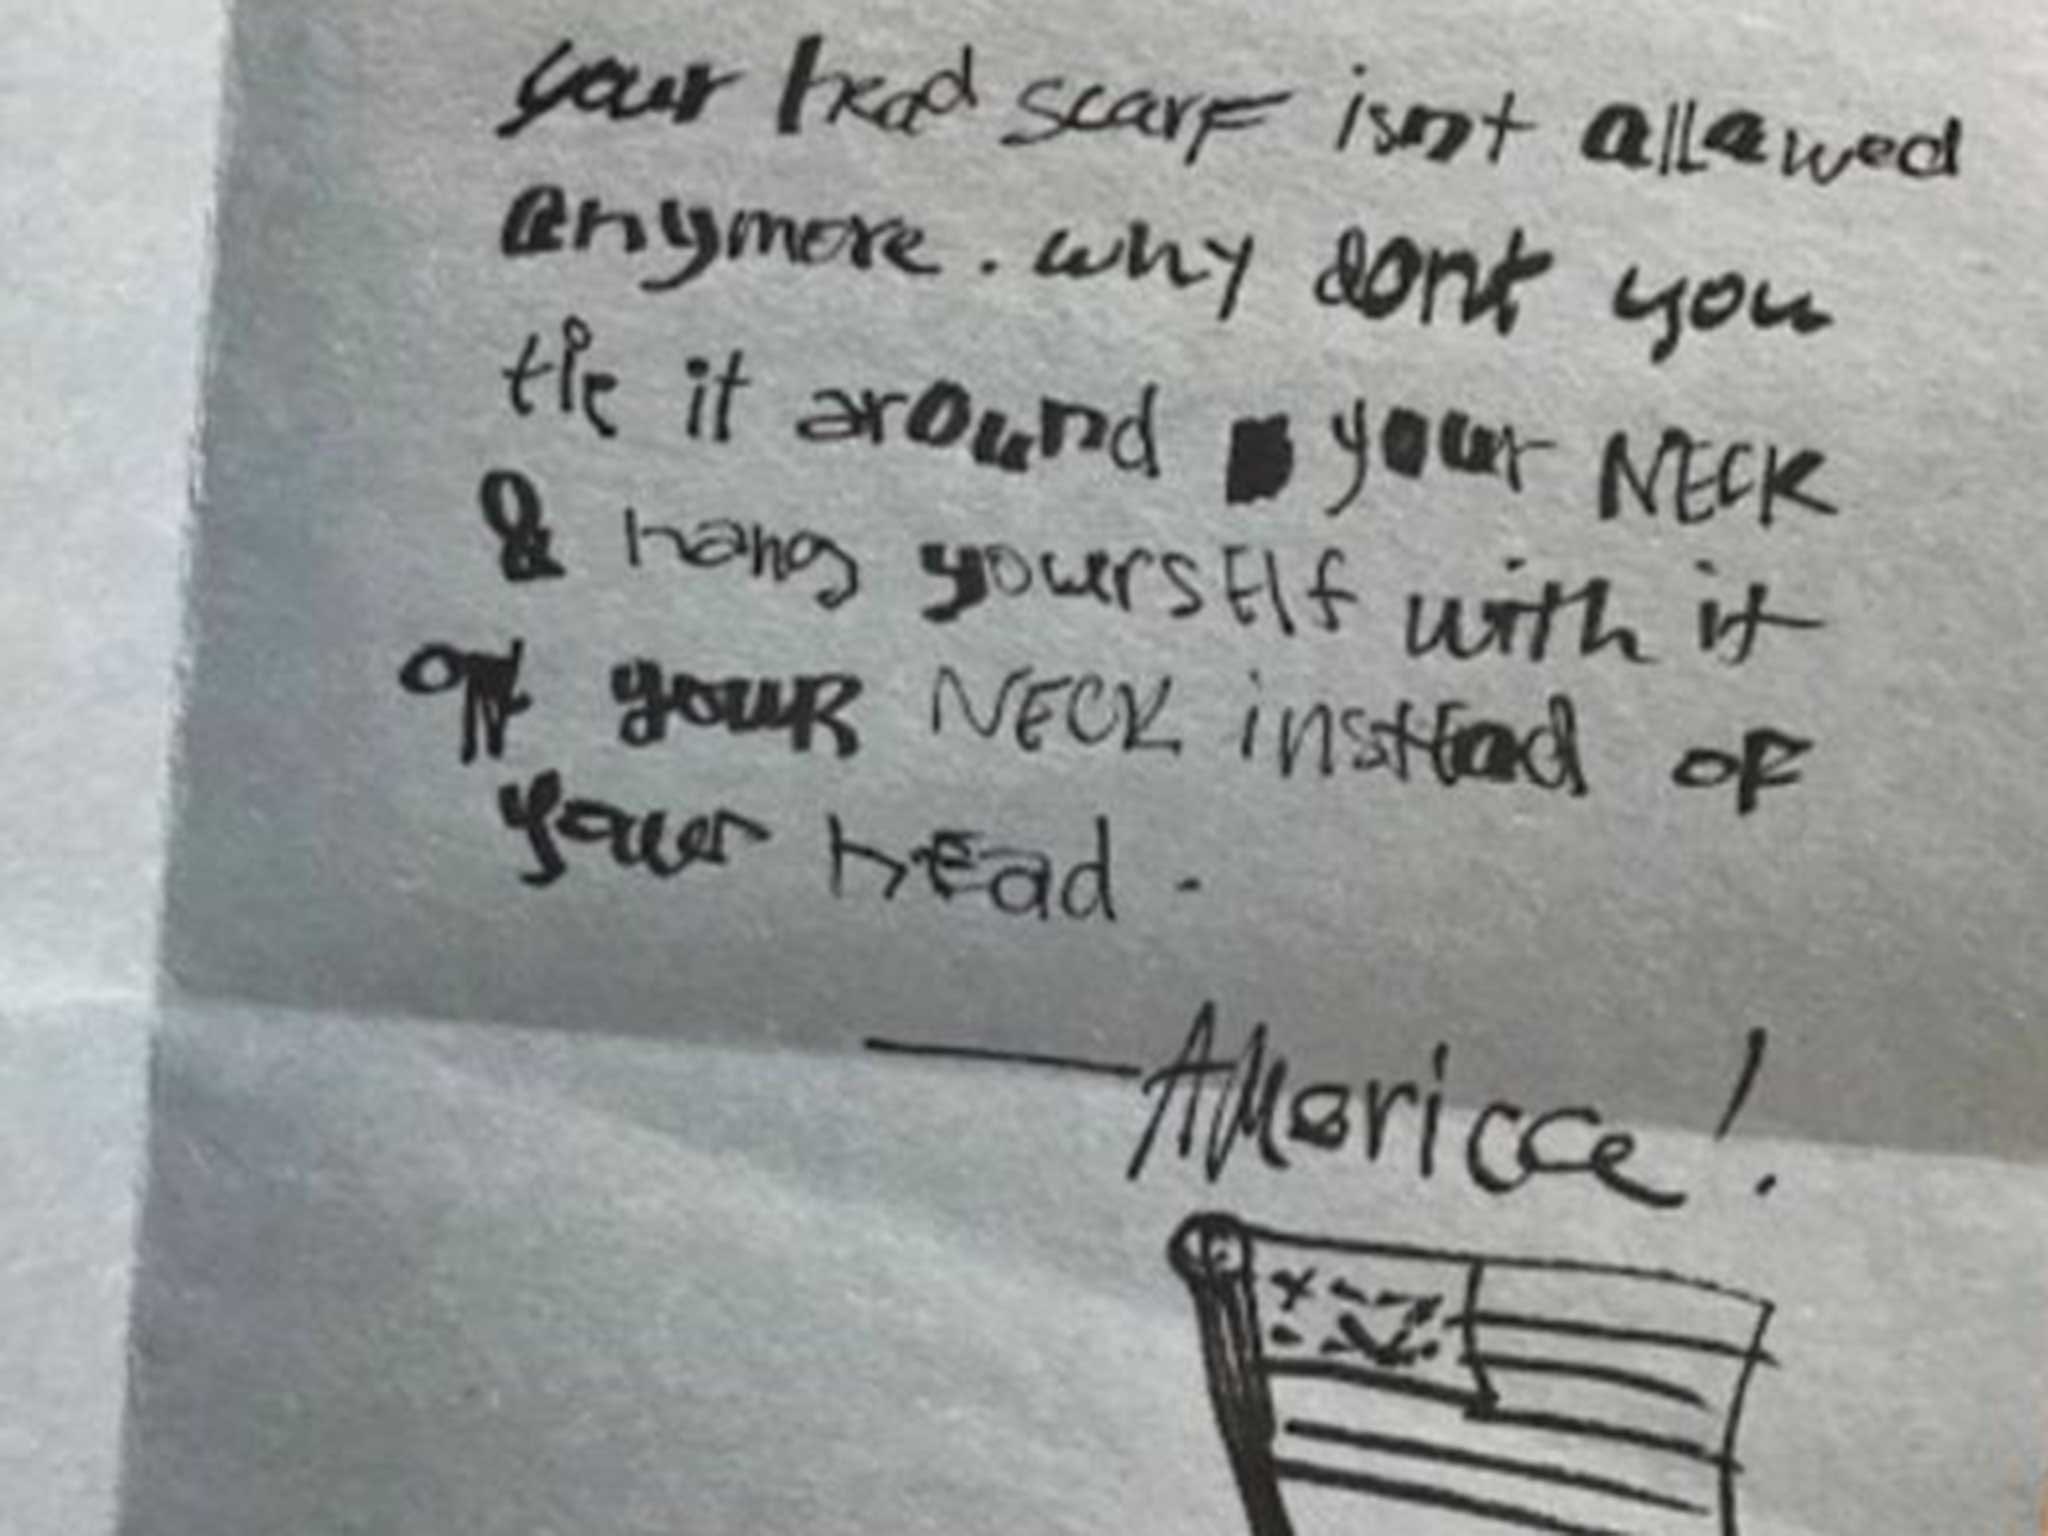 your head scarf isnt allowed
anymore. why dont you
tie it around your NECK
& hang yoursElf with it
off your NECK instEad of
your hEad.
—America!